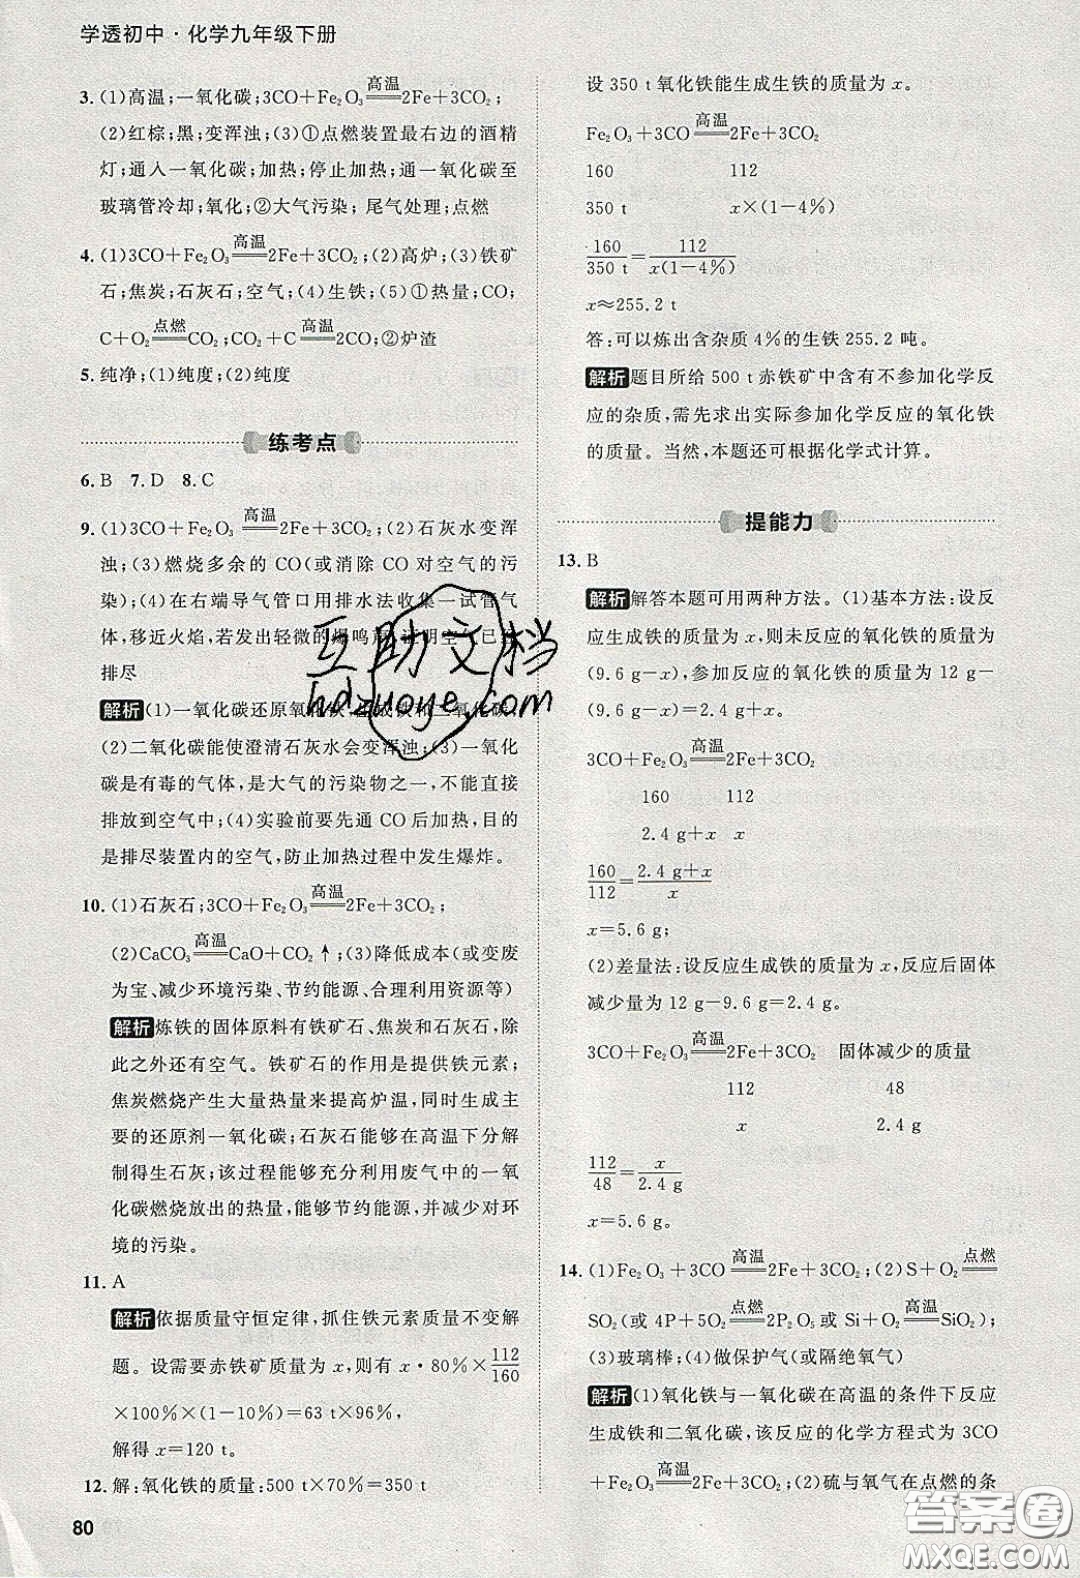 学透初中·化学九年级下册
3. (1)高温;一氧化碳;3CO+Fe₂O₃ 高温═ 2Fe+3CO₂;
(2)红棕;黑;变浑浊;(3)①点燃装置最右边的酒精
灯;通入一氧化碳;加热;停止加热;通一氧化碳至
玻璃管冷却;氧化;②大气污染; 尾气处理;点燃
4. (1)3CO+Fe₂O₃ 高温═ 2Fe+3CO₂;(2)高炉;(3)铁矿
石;焦炭;石灰石;空气;(4)生铁;(5)①热量;CO;
C+O₂ 点燃═ CO₂;CO₂+C 高温═ 2CO;②炉渣
5. 纯净;(1)纯度;(2)纯度
练考点
6. B 7. D 8. C
9. (1)3CO+Fe₂O₃ 高温═ 2Fe+3CO₂;(2)石灰水变浑
浊;(3)燃烧多余的 CO(或消除 CO 对空气的污
染);(4)在右端导气管口用排水法收集一试管气
体,移近火焰,若发出轻微的爆鸣声,证明空气已经
排尽
解析 (1)一氧化碳还原氧化铁,生成铁和二氧化碳;
(2)二氧化碳能使澄清石灰水会变浑浊;(3)一氧化
碳是有毒的气体,是大气的污染物之一,不能直接
排放到空气中;(4)实验前要先通 CO 后加热,目的
是排尽装置内的空气,防止加热过程中发生爆炸。
10. (1)石灰石;3CO+Fe₂O₃ 高温═ 2Fe+3CO₂;
(2)CaCO₃ 高温═ CaO+CO₂↑;(3)降低成本(或变废
为宝、减少环境污染、节约能源、合理利用资源等)
解析 炼铁的固体原料有铁矿石、焦炭和石灰石,除
此之外还有空气。铁矿石的作用是提供铁元素;
焦炭燃烧产生大量热量来提高炉温,同时生成主
要的还原剂一氧化碳;石灰石能够在高温下分解
制得生石灰;该过程能够充分利用废气中的一氧
化碳燃烧放出的热量,能够节约能源,并减少对环
境的污染。
11. A
解析 依据质量守恒定律,抓住铁元素质量不变解
题。设需要赤铁矿质量为 x,则有 x·80%×112/160
×100%×(1-10%)=63 t×96%,
解得 x=120 t。
12. 解:氧化铁的质量:500 t×70%=350 t
80
设 350 t 氧化铁能生成生铁的质量为 x。
Fe₂O₃+3CO 高温═ 2Fe+3CO₂
160 112
350 t x×(1-4%)
160/350 t=112/x(1-4%)
x≈255.2 t
答:可以炼出含杂质 4%的生铁 255.2 吨。
解析 题目所给 500 t 赤铁矿中含有不参加化学反
应的杂质,需先求出实际参加化学反应的氧化铁
的质量。当然,本题还可根据化学式计算。
提能力
13. B
解析 解答本题可用两种方法。(1)基本方法:设反
应生成铁的质量为 x,则未反应的氧化铁的质量为
(9.6 g-x),参加反应的氧化铁的质量为 12 g-
(9.6 g-x)=2.4 g+x。
3CO+Fe₂O₃ 高温═ 2Fe+3CO₂
160 112
2.4 g+x x
160/112=2.4 g+x/x
x=5.6 g;
(2)差量法:设反应生成铁的质量为 x,反应后固体
减少量为 12 g-9.6 g=2.4 g。
3CO+Fe₂O₃ 高温═ 2Fe+3CO₂ 固体减少的质量
112 48
x 2.4 g
112/48=x/2.4 g
x=5.6 g。
14. (1)Fe₂O₃+3CO 高温═ 2Fe+3CO₂;(2)S+O₂ 点燃═
SO₂(或 4P+5O₂ 点燃═ 2P₂O₅或 Si+O₂ 高温═ SiO₂)
(3)玻璃棒;(4)做保护气(或隔绝氧气)
解析 (1)氧化铁与一氧化碳在高温的条件下反应
生成铁和二氧化碳,该反应的化学方程式为 3CO
+Fe₂O₃ 高温═ 2Fe+3CO₂;(2)硫与氧气在点燃的条
互助文档
hdzuoye.com
答案圈
MXQE.COM